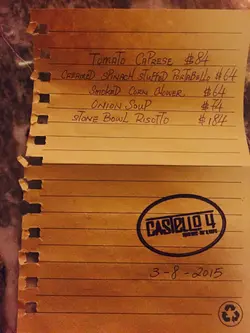 TOMATO CAPRESE $84
CREAMED SPINACH STUFFED PORTABELLO $64
SMOKED CORN CHOWER $64
ONION SOUP $74
STONE BOWL RISOTTO $184
CASTELLO 4
3-8-2015